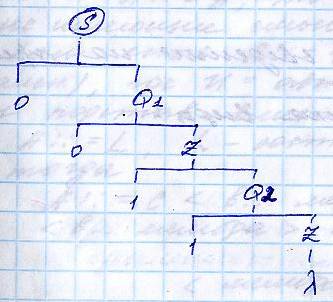 S
0 Q1
0 Z
1 Q2
1 Z
λ